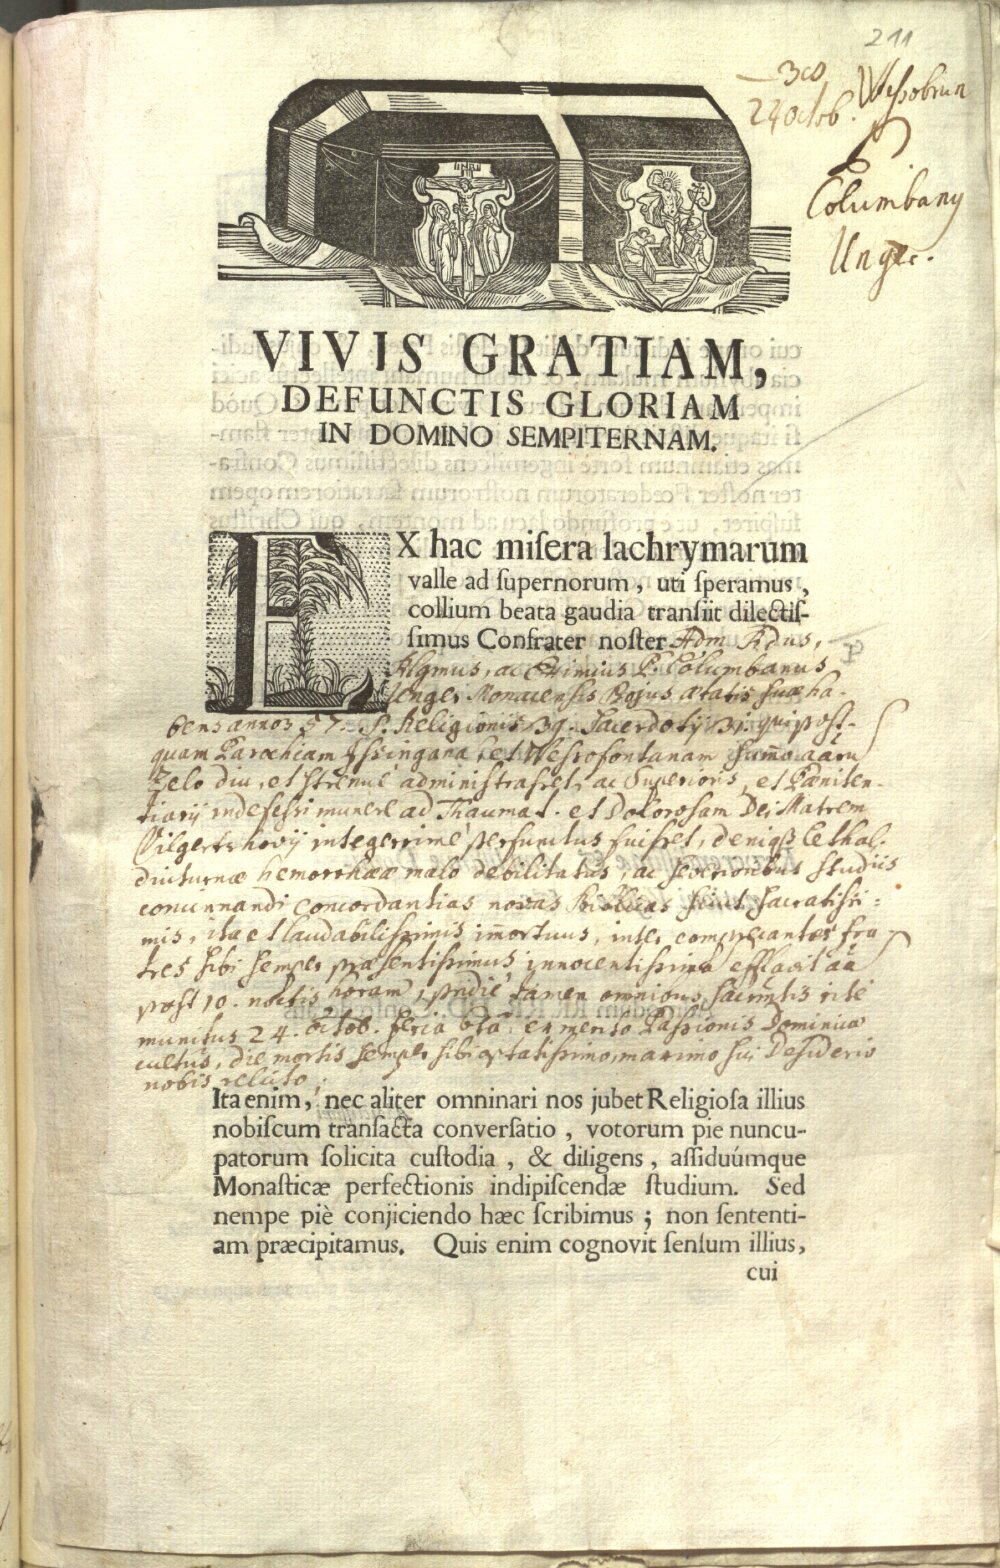 211
3co
24 octob. Wessobrun
P
Columbany
Unger.
INRI
VIVIS GRATIAM,
DEFUNCTIS GLORIAM
IN DOMINO SEMPITERNAM.
EX hac miſera lachrymarum
valle ad ſupernorum, uti ſperamus,
collium beata gaudia tranſiit dilectiſ-
ſimus Confrater noſter Adm. Rdus,
ac Eximius P. Columbanus
Unger Monacensis Bojus ætatis suæ ha-
bens annos 57. S. Religionis 39. Sacerdotij 31. qui post-
quam Parochiam Issingana, et Wessofontanam summo aarū
zelo diu, et strenuè administrasset, ac Superioris, et Pæniten-
tiarij indefessi munere ad Thaumat. et Dolorosam Dei Matrem
Vilgertshovij integerrimè perfunctus fuisset, deniq3 lethal.
diuturnæ hemorrhææ malo debilitatus, ac severioribus studiis
concinnandi concordantias novas Biblicas sicut sacratissi-
mis, ita et laudabilissimis im̄ortuus, inter comprecantes fra-
tres sibi semper præsentissimus, innocentissimā efflavit aā
post 10. noctis horam, pridie tamen omnibus sacrm̄tis ritè
munitus 24. octob. feria 6tâ, ex merito Passionis Dominicæ
cultus, die mortis semper sibi optatissimo, maximo sui desiderio
nobis relicto;
Ita enim, nec aliter omninari nos jubet Religioſa illius
nobiſcum tranſacta converſatio, votorum pie nuncu-
patorum ſolicita cuſtodia, & diligens, aſſiduúmque
Monaſticæ perfectionis indipiſcendæ ſtudium. Sed
nempe piè conjiciendo hæc ſcribimus; non ſententi-
am præcipitamus. Quis enim cognovit ſenſum illius,
cui